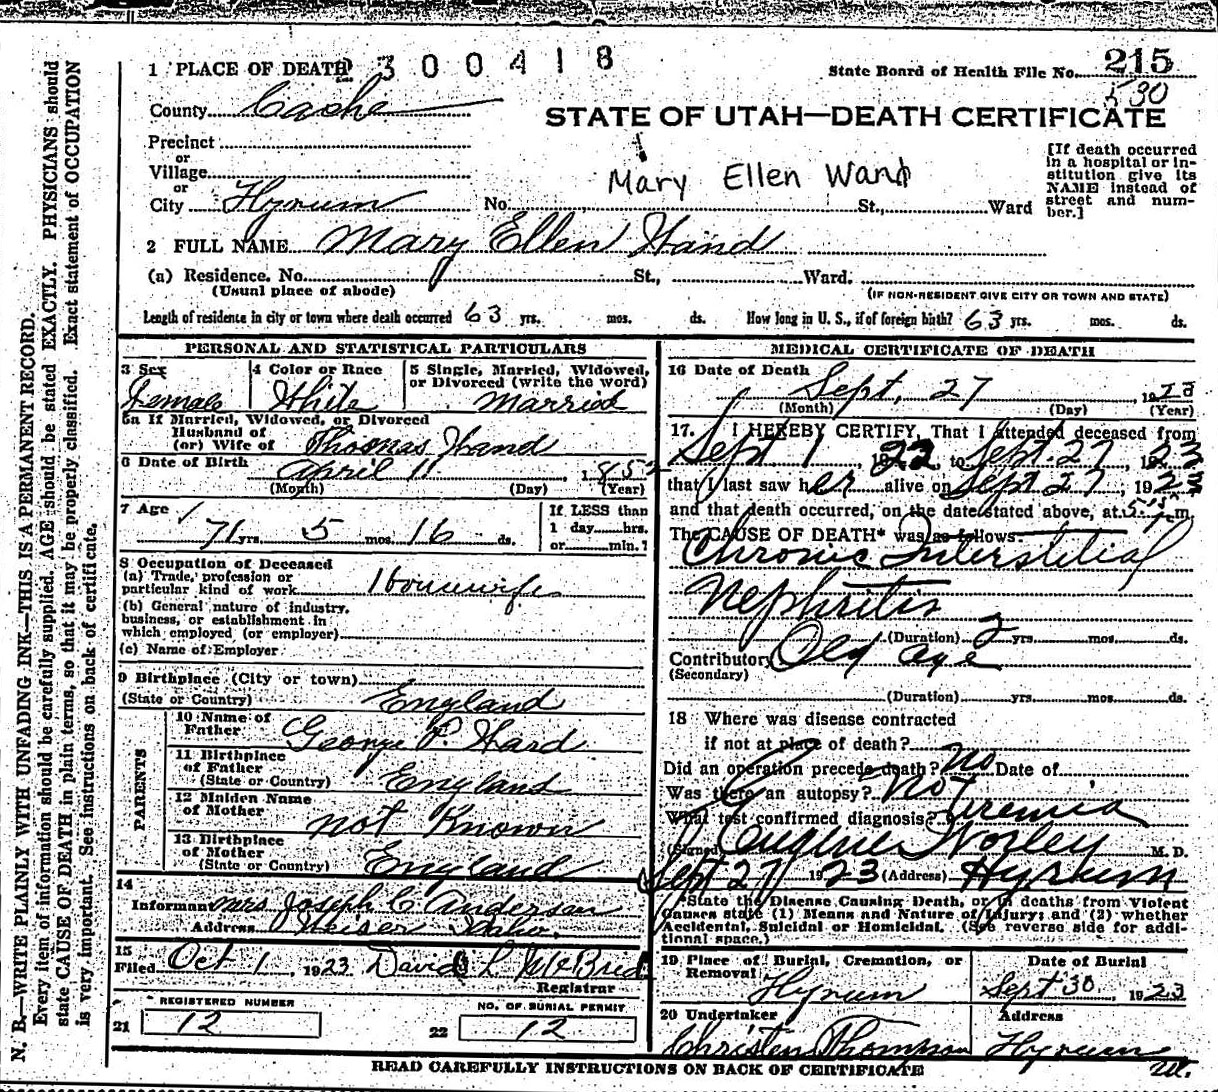 N. B.—WRITE PLAINLY WITH UNFADING INK—THIS IS A PERMANENT RECORD.
Every item of information should be carefully supplied. AGE should be stated EXACTLY. PHYSICIANS should
state CAUSE OF DEATH in plain terms, so that it may be properly classified. Exact statement of OCCUPATION
is very important. See instructions on back of certificate.
1 PLACE OF DEATH 300418
State Board of Health File No. 215
530
County Cache
STATE OF UTAH—DEATH CERTIFICATE
Precinct
or
Village
or
City Hyrum No. St., Ward
[If death occurred
in a hospital or in-
stitution give its
NAME instead of
street and num-
ber.]
Mary Ellen Wand
2 FULL NAME Mary Ellen Hand
(a) Residence. No. St., Ward.
(Usual place of abode)
(IF NON-RESIDENT GIVE CITY OR TOWN AND STATE)
Length of residence in city or town where death occurred 63 yrs. mos. ds. How long in U. S., if of foreign birth? 63 yrs. mos. ds.
PERSONAL AND STATISTICAL PARTICULARS
3 Sex
Female
4 Color or Race
White
5 Single, Married, Widowed,
or Divorced (write the word)
Married
5a If Married, Widowed, or Divorced
Husband of
(or) Wife of Thomas Hand
6 Date of Birth April 11, 1852
(Month) (Day) (Year)
7 Age
71 yrs. 5 mos. 16 ds.
If LESS than
1 day hrs.
or min.?
8 Occupation of Deceased
(a) Trade, profession or
particular kind of work Housewife
(b) General nature of industry,
business, or establishment in
which employed (or employer)
(c) Name of Employer
9 Birthplace (City or town)
(State or Country) England
PARENTS
10 Name of
Father George P. Ward
11 Birthplace
of Father
(State or Country) England
12 Maiden Name
of Mother not Known
13 Birthplace
of Mother
(State or Country) England
14
Informant Mrs Joseph C Anderson
Address Weiser Idaho.
15
Filed Oct 1, 1923 David L McBride
Registrar
REGISTERED NUMBER
21 12
NO. OF BURIAL PERMIT
22 12
MEDICAL CERTIFICATE OF DEATH
16 Date of Death
Sept, 27, 1923
(Month) (Day) (Year)
17. I HEREBY CERTIFY, That I attended deceased from
Sept 1, 1922, to Sept. 27, 1923
that I last saw her alive on Sept 27, 1923
and that death occurred, on the date stated above, at m.
The CAUSE OF DEATH* was as follows:
Chronic Interstitial
Nephritis
(Duration) 2 yrs. mos. ds.
Contributory Old age
(Secondary)
(Duration) yrs. mos. ds.
18 Where was disease contracted
if not at place of death?
Did an operation precede death? No Date of
Was there an autopsy? No
What test confirmed diagnosis? Uremia
(Signed) Eugene Worley M. D.
Sept 27 1923 (Address) Hyrum
*State the Disease Causing Death, or in deaths from Violent
Causes state (1) Means and Nature of Injury; and (2) whether
Accidental, Suicidal or Homicidal. (See reverse side for addi-
tional space.)
19 Place of Burial, Cremation, or
Removal
Hyrum
Date of Burial
Sept 30, 1923
20 Undertaker
Christen Thompson
Address
Hyrum
Ut.
READ CAREFULLY INSTRUCTIONS ON BACK OF CERTIFICATE